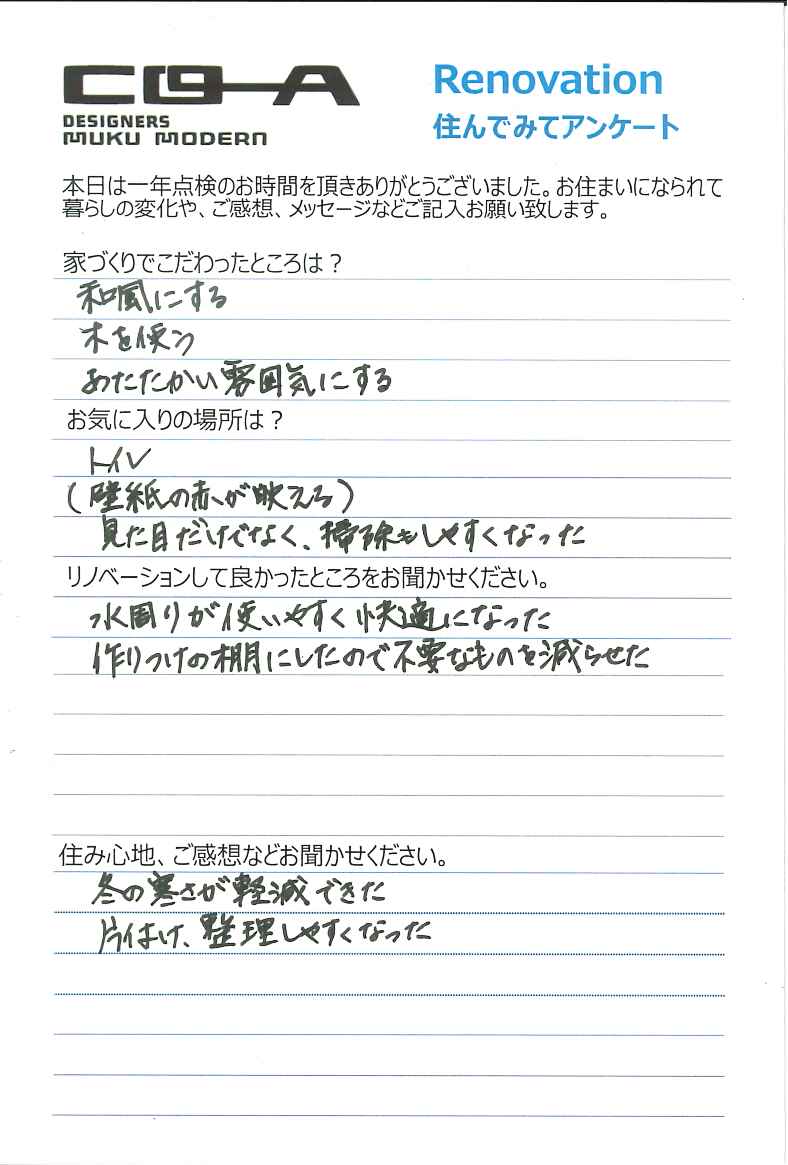 Renovation
DESIGNERS
MUKU MODERN
住んでみてアンケート
本日は一年点検のお時間を頂きありがとうございました。お住まいになられて
暮らしの変化や、ご感想、メッセージなどご記入お願い致します。
家づくりでこだわったところは？
和風にする
木を使う
あたたかい雰囲気にする
お気に入りの場所は？
トイレ
(壁紙の赤が映える)
見た目だけでなく、掃除もしやすくなった
リノベーションして良かったところをお聞かせください。
水周りが使いやすく快適になった
作りつけの棚にしたので不要なものを減らせた
住み心地、ご感想などお聞かせください。
冬の寒さが軽減できた
片付け、整理しやすくなった